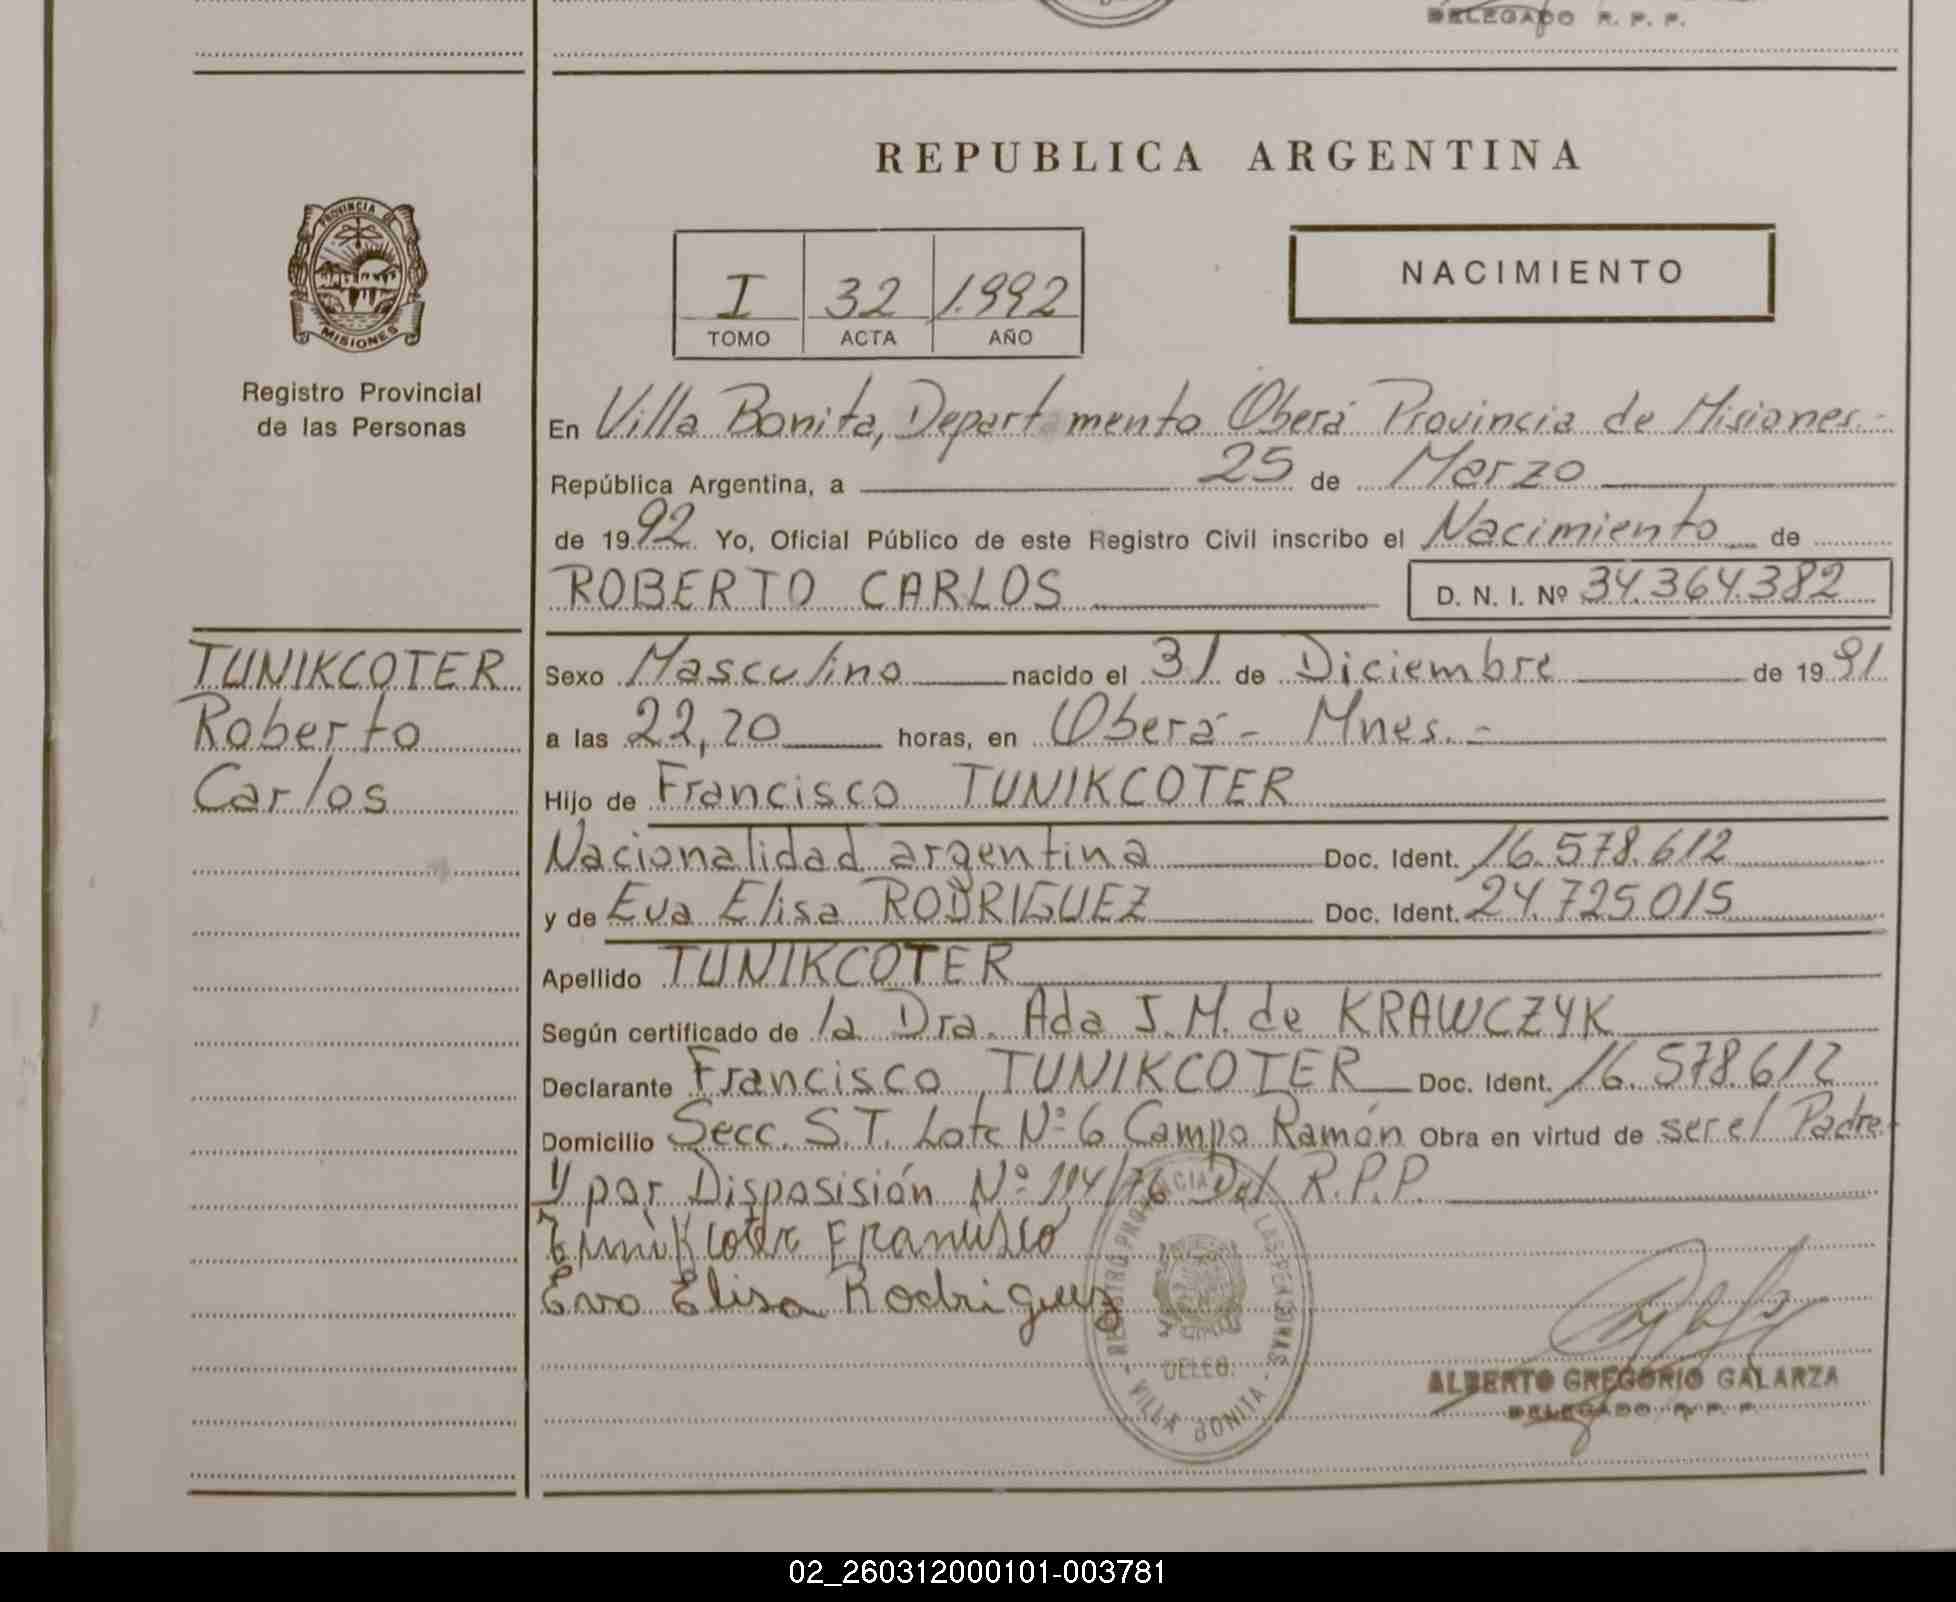 DELEGADO R. P. P.
REPUBLICA ARGENTINA
PROVINCIA DE
MISIONES
Registro Provincial
de las Personas
I 32 1.992
TOMO ACTA AÑO
NACIMIENTO
En Villa Bonita, Departamento Oberá Provincia de Misiones.-
República Argentina, a 25 de Marzo
de 1992 Yo, Oficial Público de este Registro Civil inscribo el Nacimiento de
ROBERTO CARLOS D. N. I. Nº 34.364.382
TUNIKCOTER
Roberto
Carlos
Sexo Masculino nacido el 31 de Diciembre de 1991
a las 22,20 horas, en Oberá - Mnes.-
Hijo de Francisco TUNIKCOTER
Nacionalidad argentina Doc. Ident. 16.578.612
y de Eva Elisa RODRIGUEZ Doc. Ident. 24.725.015
Apellido TUNIKCOTER
Según certificado de la Dra. Ada J. M. de KRAWCZYK
Declarante Francisco TUNIKCOTER Doc. Ident. 16.578.612
Domicilio Secc. S.T. Lote Nº 6 Campo Ramón Obra en virtud de ser el Padre.-
Y por Disposisión Nº 114/76 Del R.P.P.
Tunikcoter Francisco
Eva Elisa Rodriguez
REGISTRO PROVINCIAL DE LAS PERSONAS
DELEG.
- VILLA BONITA -
ALBERTO GREGORIO GALARZA
DELEGADO R. P. P.
02_260312000101-003781